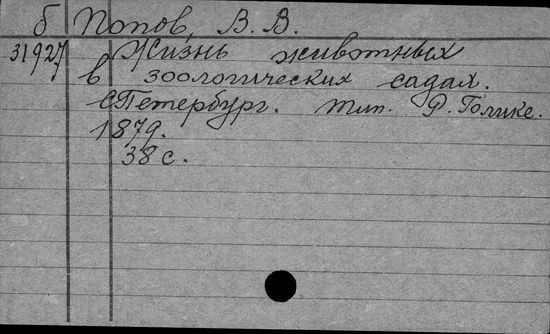 б Попов, В. В.
31927 Жизнь животных
в зоологических садах.
СПетербург. тип. Р. Голике.
1879.
38 с.